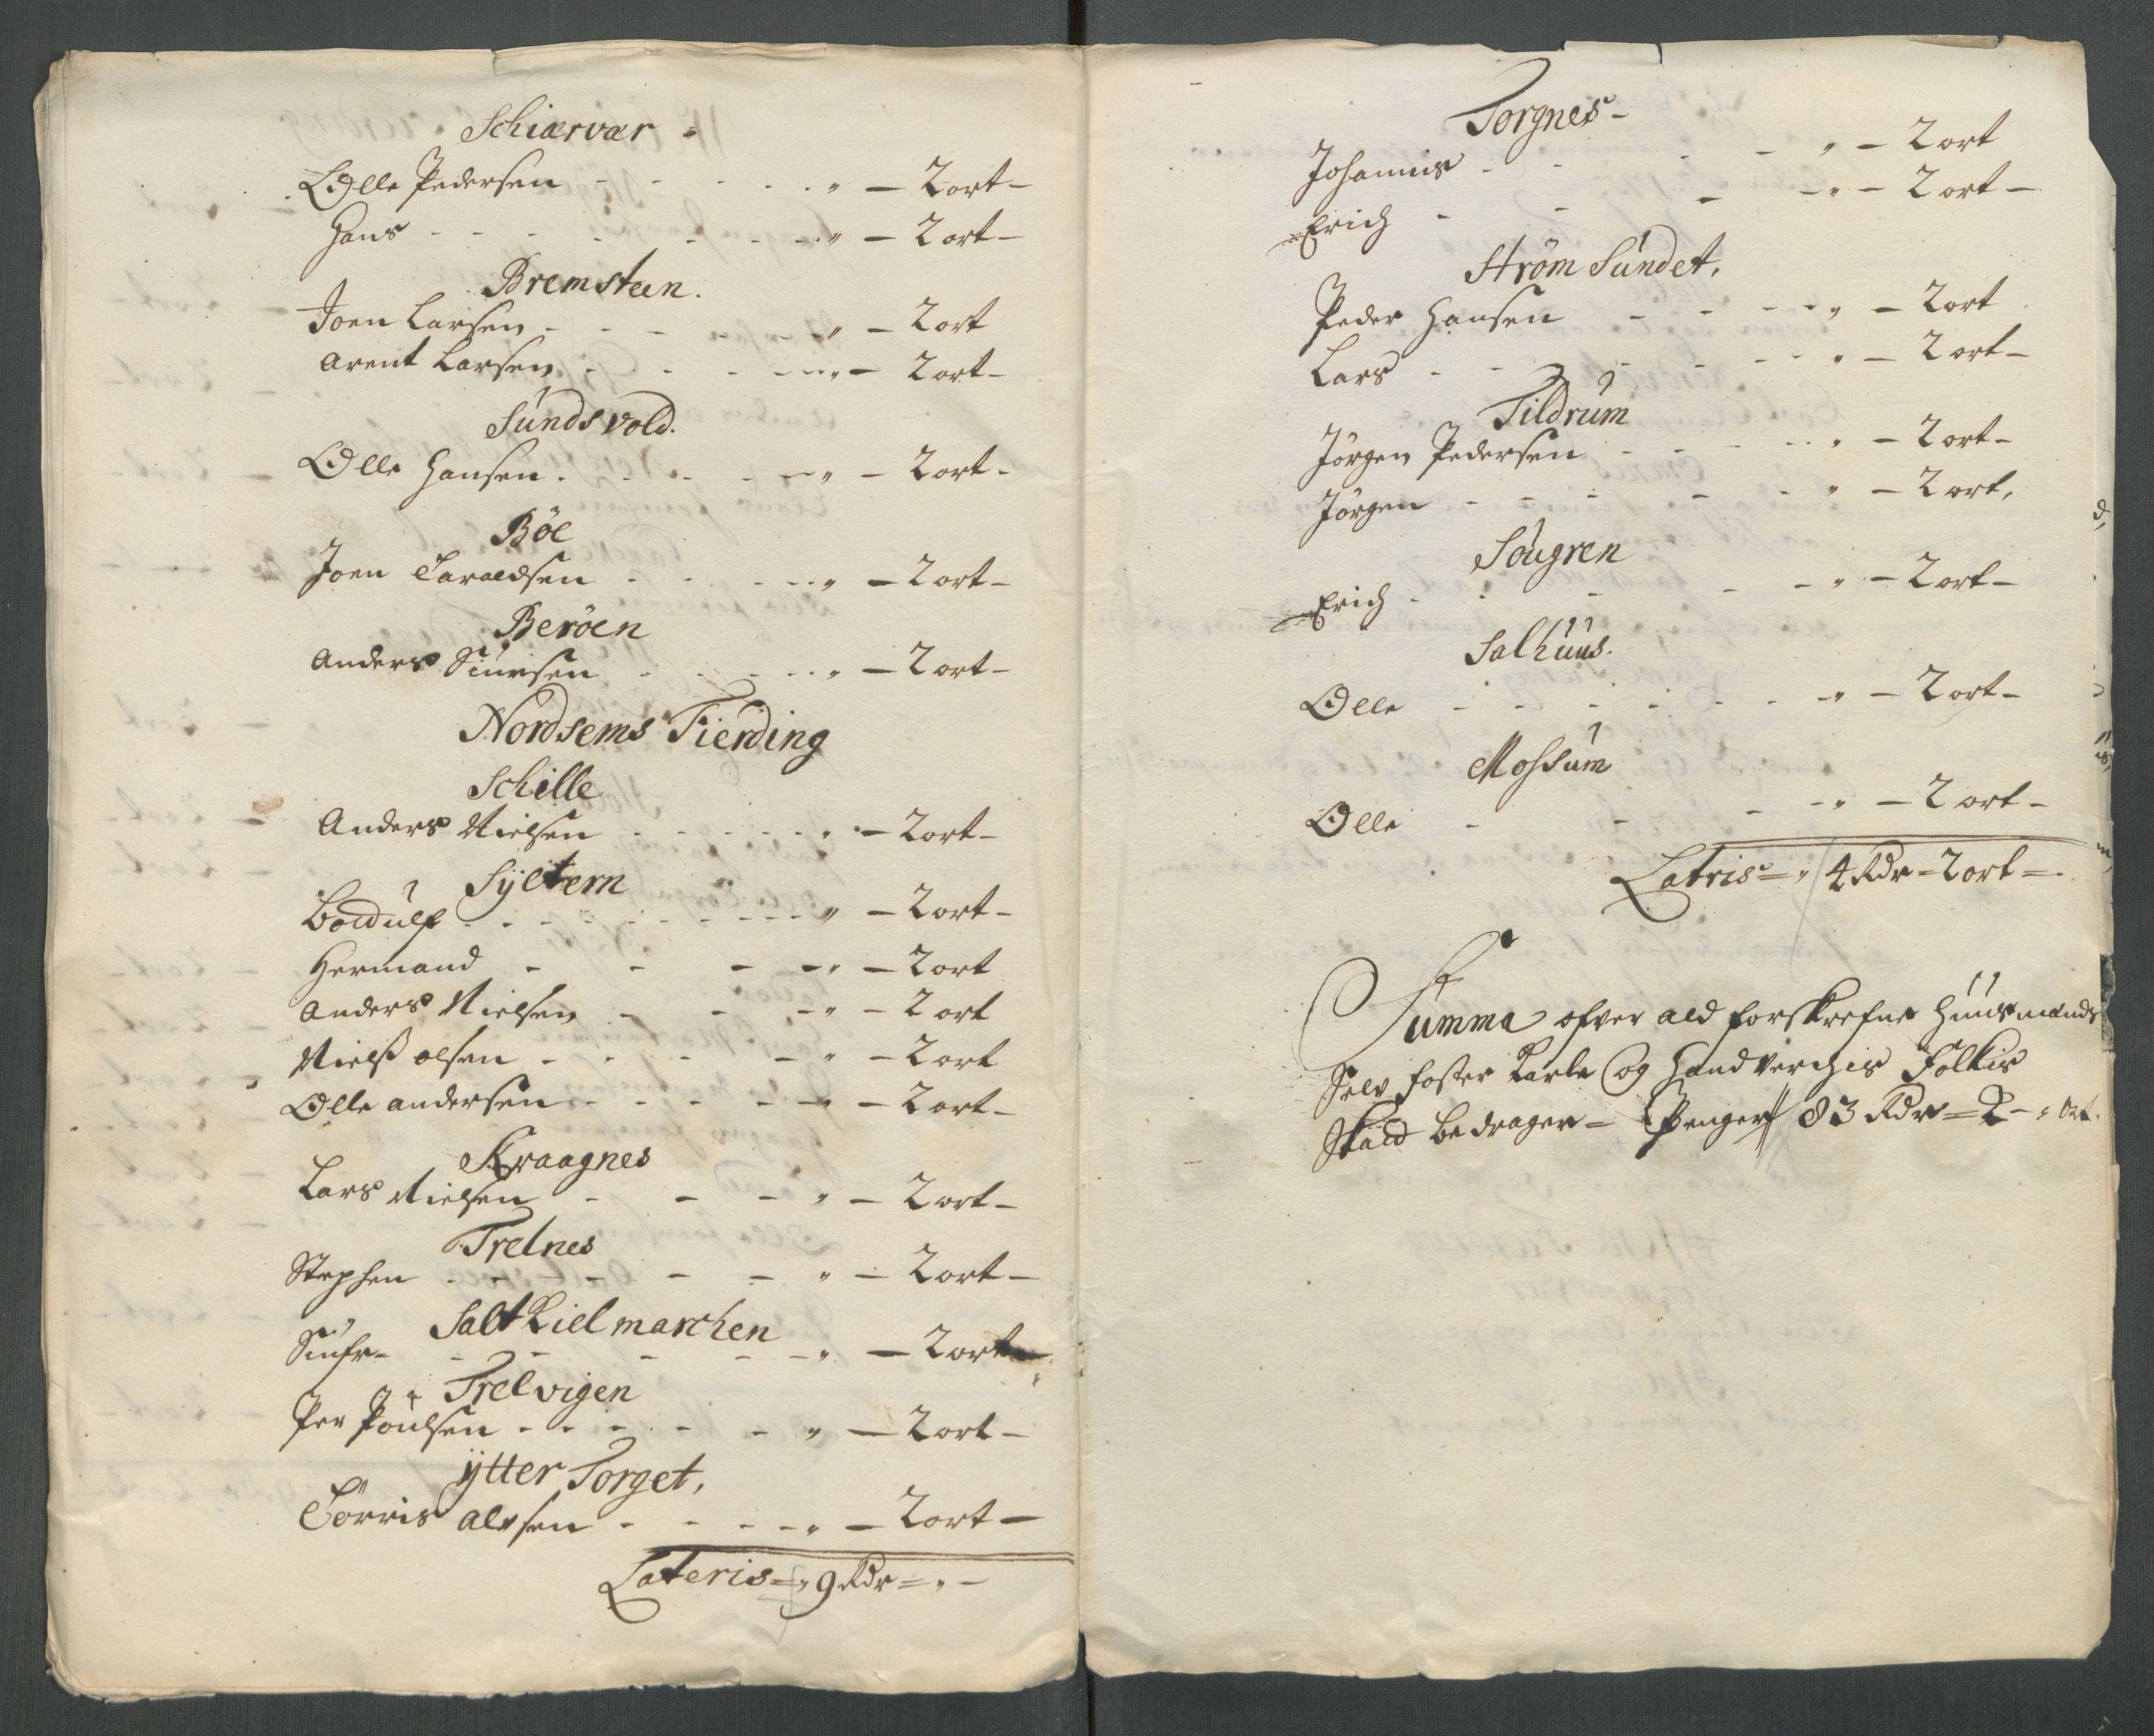 Schiærvær -
Olle Pedersen - - - - - " - 2 ort -
Hans - - - - - - - " - 2 ort -
Bremsteen.
Joen Larsen - - - - " - 2 ort
Arent Larsen - - - - " - 2 ort -
Sundsvold.
Olle Hansen - - - - " - 2 ort -
Böe
Joen Taraldsen - - - - " - 2 ort -
Beröen
Anders Siursen - - - - " - 2 ort -
Nordsems Fierding
Schille
Anders Nielsen - - - - - " - 2 ort -
Syltern
Boldulf - - - - - - - " - 2 ort -
Hermand - - - - " - 2 ort
Anders Nielsen - - - " - 2 ort
Nielß olsen - - - - " - 2 ort
Olle andersen - - - - - " - 2 ort -
Kraagnes
Lars Nielsen - - - " - 2 ort -
Trelnes
Stephen - - - - - " - 2 ort -
Saltkielmarchen
Siufr - - - - - " - 2 ort -
Trelvigen
Per Poulsen - - - - - " - 2 ort -
ÿtter Torget,
Törris alesen - - - - " - 2 ort -
Lateris = " 9 Rdr = " -
Torgnes -
Johannis - - - - " - 2 ort
Erich - - - - " - 2 ort -
Ström Sundet,
Peder Hansen - - - - " - 2 ort
Lars - - - - - " - 2 ort -
Tildrum
Jörgen Pedersen - - - - " - 2 ort -
Jörgen - - - - - " - 2 ort,
Sougren
Erich - - - - - " - 2 ort -
Salhuus.
Olle - - - - - - - " - 2 ort -
Mossum
Olle - - - - " - 2 ort -
Latris = " 4 Rdr = 2 ort =
Summa ofver ald forskrefne Huusmænds
Selv foster Karle og Handverchis Folkis
Skatt bedrager = Penger 83 Rdr = 2 - " ort.